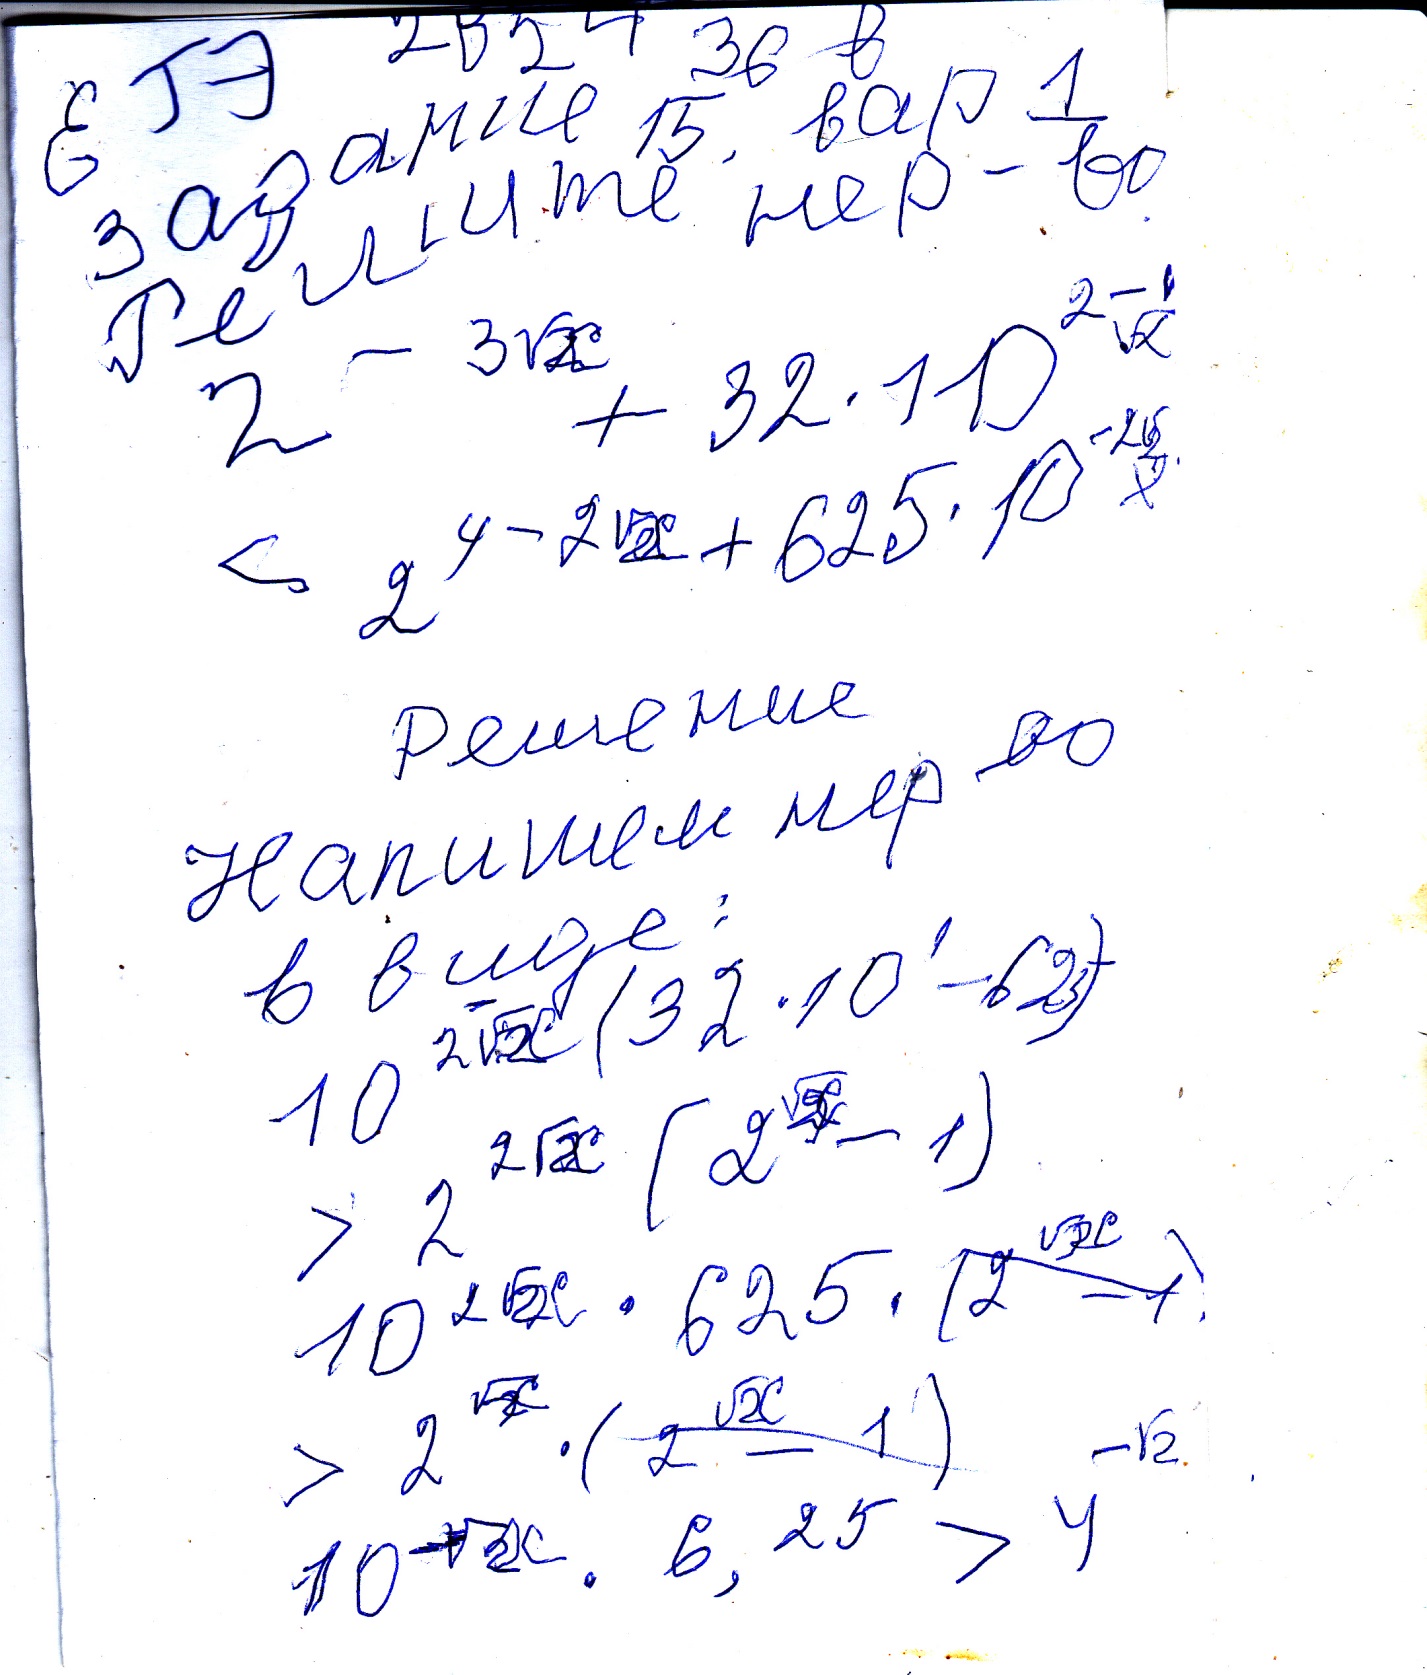 ЕГЭ 2024 36 в
задание 15. вар 1
Решите нер-во
2^{-3√x} + 32·10^{2-1√x}
< 2^{4-2√x} + 625·10^{-2√x}
Решение
Напишем нер-во
в виде:
10^{-2√x} (32·10^1 - 625)
> 2^{2√x} (2^{√x} - 1)
10^{2√x} · 625 · (2^{√x} - 1)
> 2^{√x} · (2^{√x} - 1)
10^{-√x} · 6,25 > 4^{-√x}